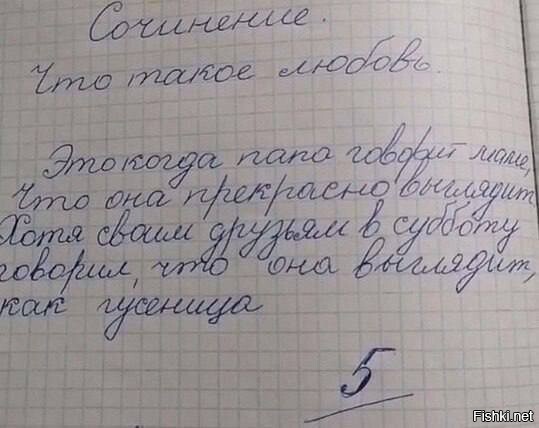 Сочинение.
Что такое любовь.
Это когда папа говорит маме,
что она прекрасно выглядит
Хотя своим друзьям в субботу
говорил, что она выглядит,
как гусеница
5
Fishki.net